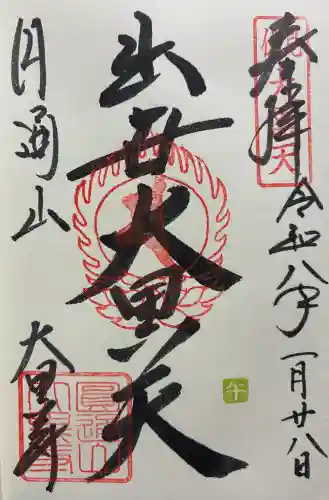 奉拝
令和八年
一月廿八日
出世大黒天
円通山
大黒寺
午